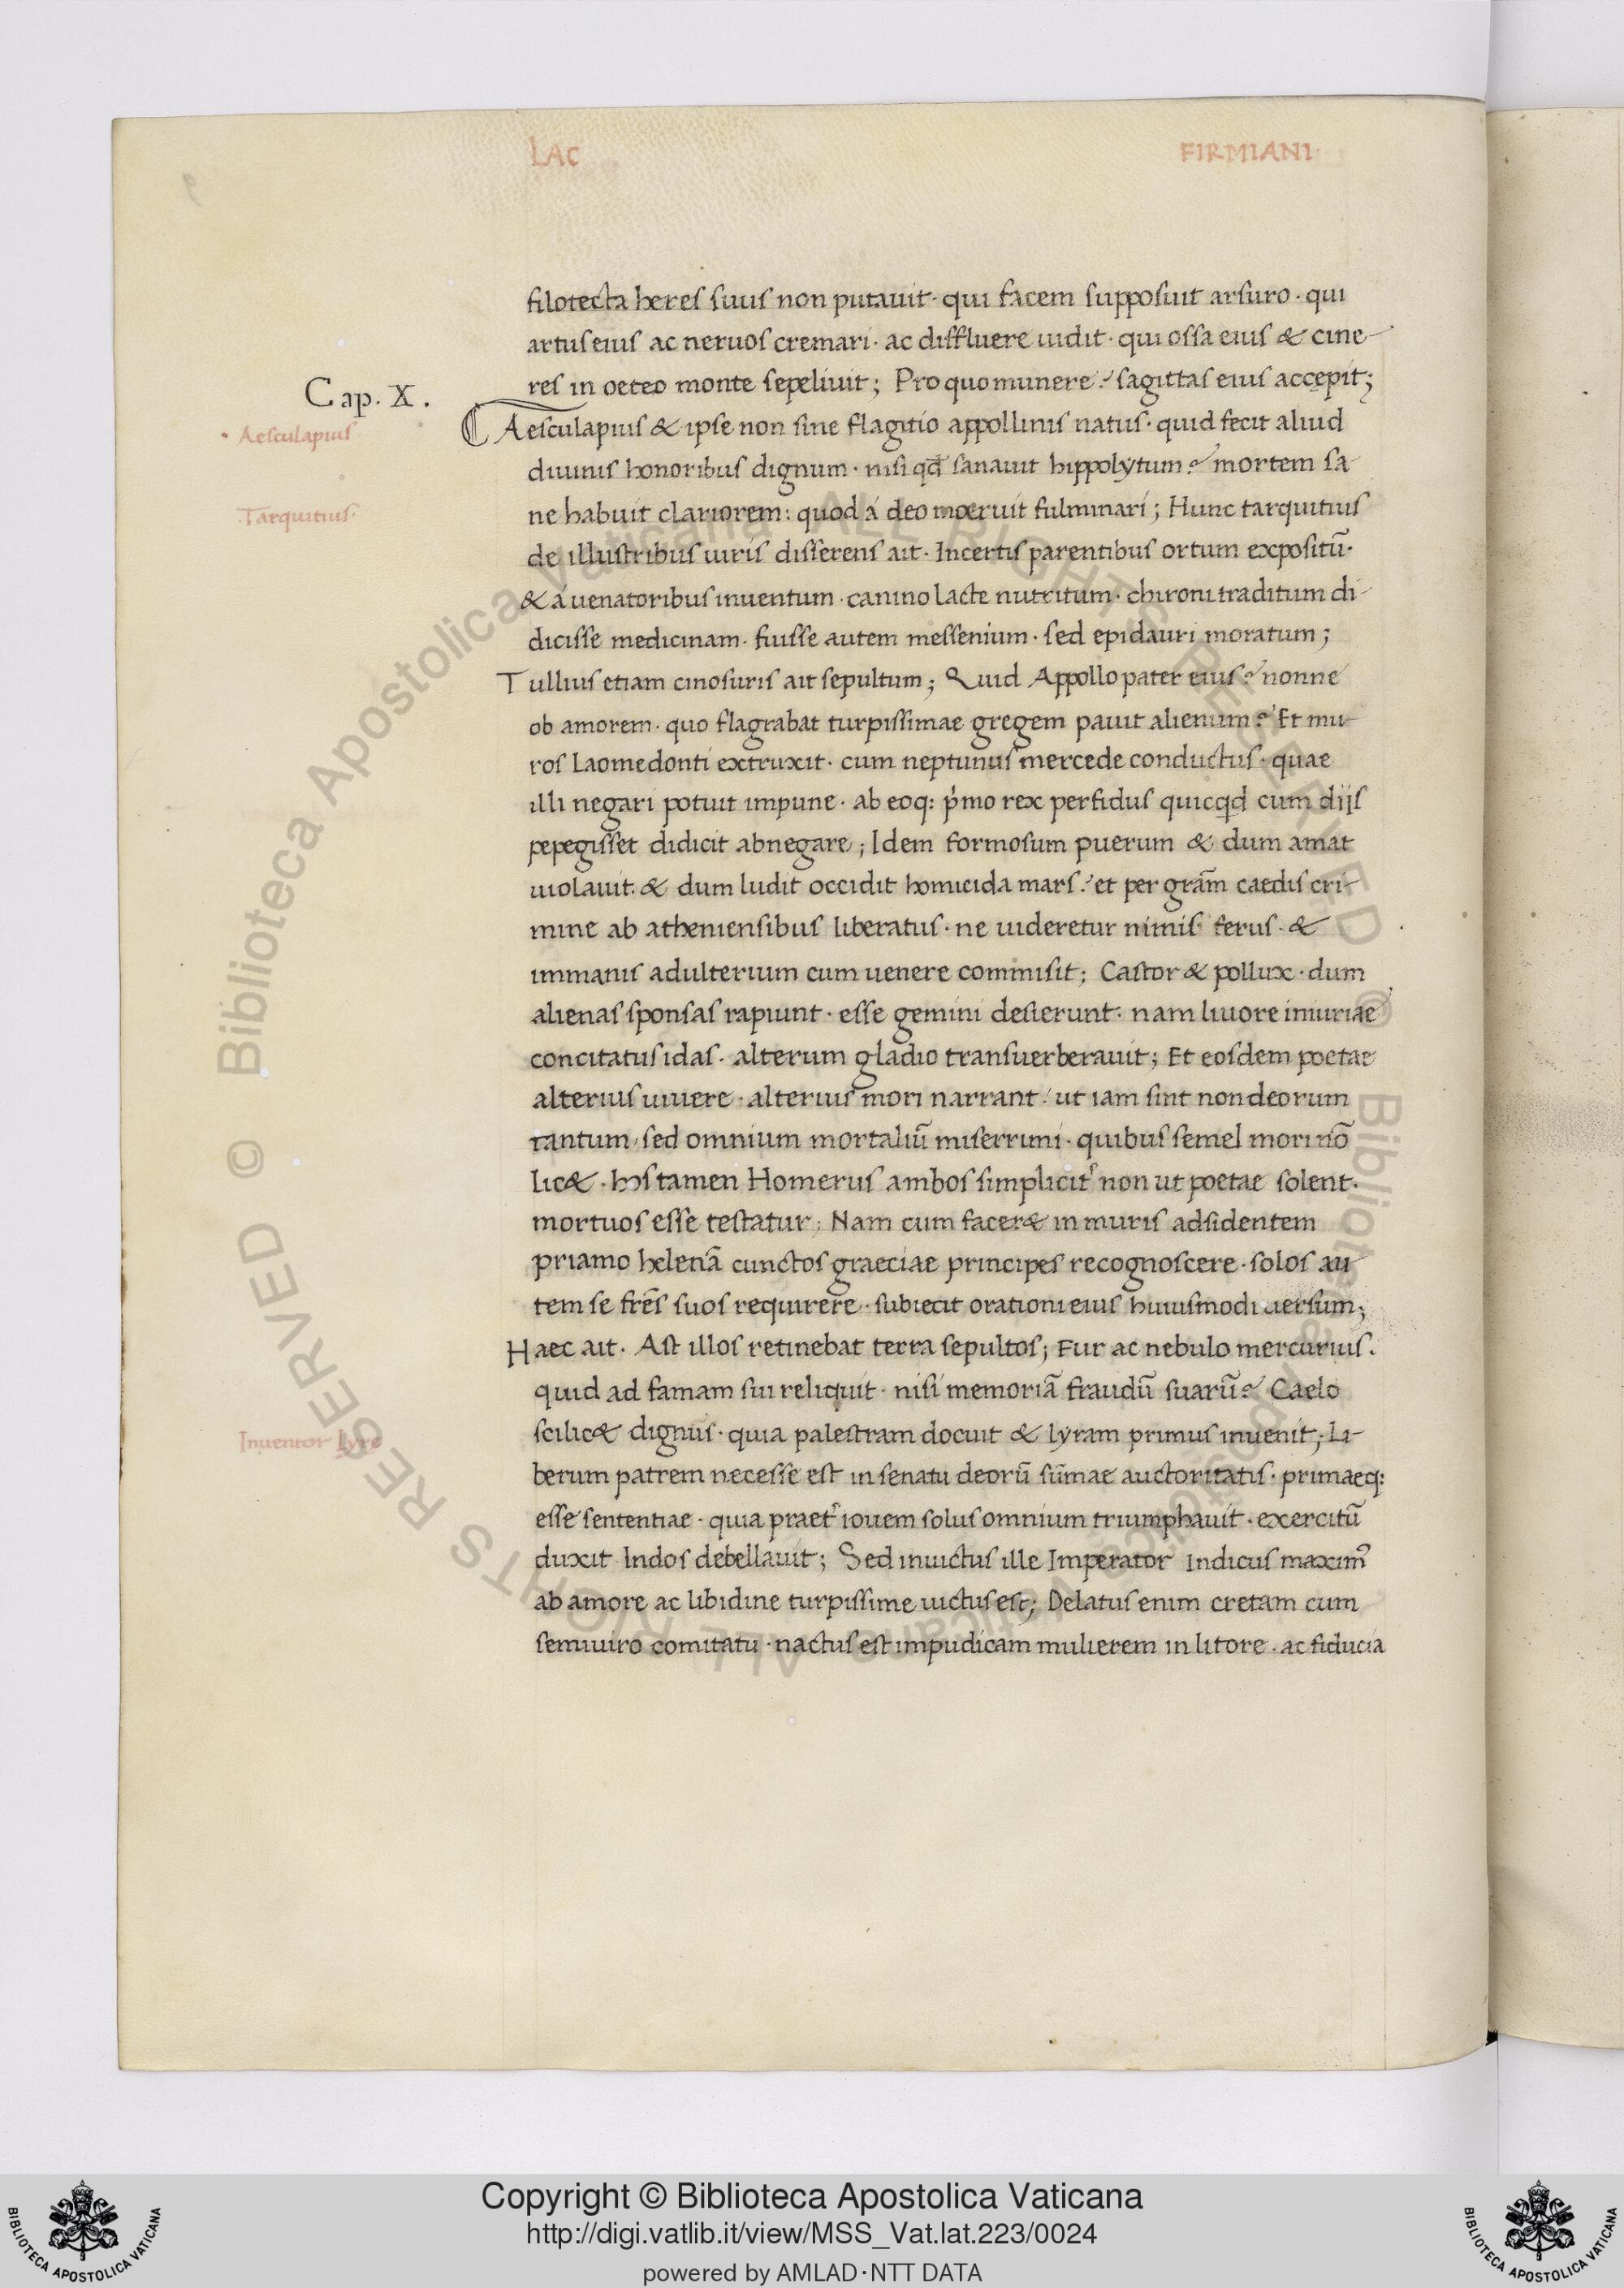 LAC FIRMIANI
filotecta heres suus non putauit· qui facem supposuit arsuro· qui
artus eius ac neruos cremari· ac diffluere uidit· qui ossa eius & cine-
res in oeteo monte sepeliuit; Pro quo munere? sagittas eius accepit;
Cap. X.
Aesculapius
Aesculapius & ipse non sine flagitio appollinis natus· quid fecit aliud
diuinis honoribus dignum· nisi qđ sanauit hippolytum? mortem sa-
Tarquitius·
ne habuit clariorem: quod á deo moeruit fulminari; Hunc tarquitius
de illustribus uiris disserens ait· Incertis parentibus ortum expositū·
& á uenatoribus inuentum· canino lacte nutritum· chironi traditum di-
dicisse medicinam· fuisse autem messenium· sed epidauri moratum;
Tullius etiam cinosuris ait sepultum; Quid Appollo pater eius? nonne
ob amorem· quo flagrabat turpissimae gregem pauit alienum? Et mu-
ros Laomedonti extruxit· cum neptunus mercede conductus· quae
illi negari potuit impune· ab eoq: p̍mo rex perfidus quicqđ cum dijs
pepegisset didicit abnegare; Idem formosum puerum & dum amat
uiolauit· & dum ludit occidit homicida mars? et per grām caedis cri-
mine ab atheniensibus liberatus· ne uideretur nimis ferus· &
immanis adulterium cum uenere commisit; Castor & pollux· dum
alienas sponsas rapiunt· esse gemini desierunt· nam liuore iniuriae
concitatus idas· alterum gladio transuerberauit; Et eosdem poetae
alterius uiuere· alterius mori narrant· ut iam sint non deorum
tantum, sed omnium mortaliū miserrimi· quibus semel mori nō
lic&· hos tamen Homerus ambos simplicit̍ non ut poetae solent·
mortuos esse testatur; Nam cum facer& in muris adsidentem
priamo helenā cunctos graeciae principes recognoscere· solos au-
tem se frēs suos requirere· subiecit orationi eius huiusmodi uersum;
Haec ait· Ast illos retinebat terra sepultos; Fur ac nebulo mercurius·
quid ad famam sui reliquit· nisi memoriā fraudū suarū? Caelo
Inuentor Lyre
scilic& dignus· quia palestram docuit & lyram primus inuenit; Li-
berum patrem necesse est in senatu deorū sūmae auctoritatis· primaeq:
esse sententiae· quia praet̍ iouem solus omnium triumphauit· exercitū
duxit Indos debellauit; Sed inuictus ille Imperator Indicus maximꝰ
ab amore ac libidine turpissime uictus est; Delatus enim cretam cum
semiuiro comitatu· nactus est impudicam mulierem in litore· ac fiducia
© Biblioteca Apostolica Vaticana ALL RIGHTS RESERVED © Biblioteca Apostolica Vaticana ALL RIGHTS RESERVED
Copyright © Biblioteca Apostolica Vaticana
http://digi.vatlib.it/view/MSS_Vat.lat.223/0024
powered by AMLAD·NTT DATA
BIBLIOTECA APOSTOLICA VATICANA
BIBLIOTECA APOSTOLICA VATICANA